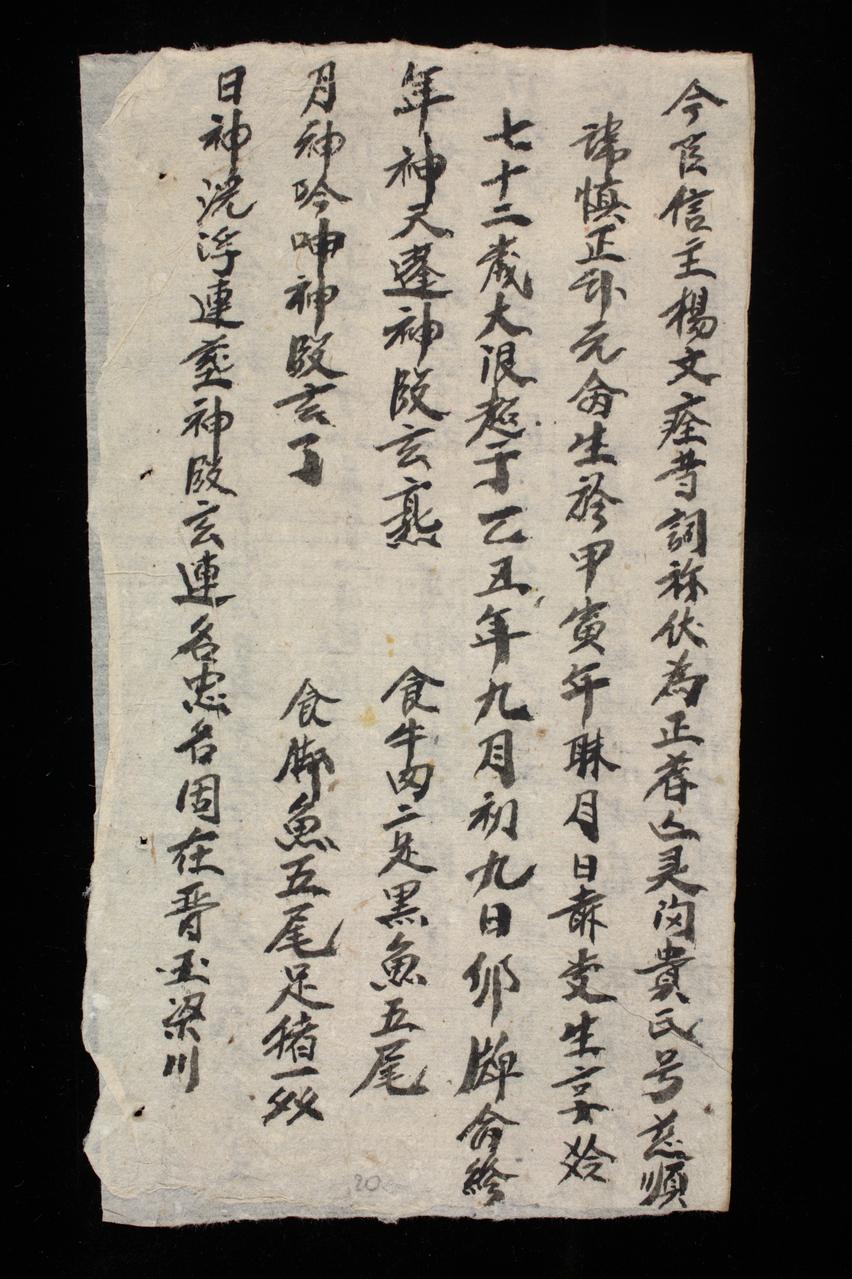 今臣信主楊文痊昔詞称伏為正荐亡灵向貴氏号慈順
諱慎正郭元命生於甲寅年月日受生享
七十二歳大限超于乙丑年九月初九日卯牌命終
年神天蓬神殴玄 食牛肉二足黒魚五尾
月神吟呻神殴玄了 食脚魚五尾足猪一双
日神洸浮連神殴玄連名忠名固在晋国梁川
20